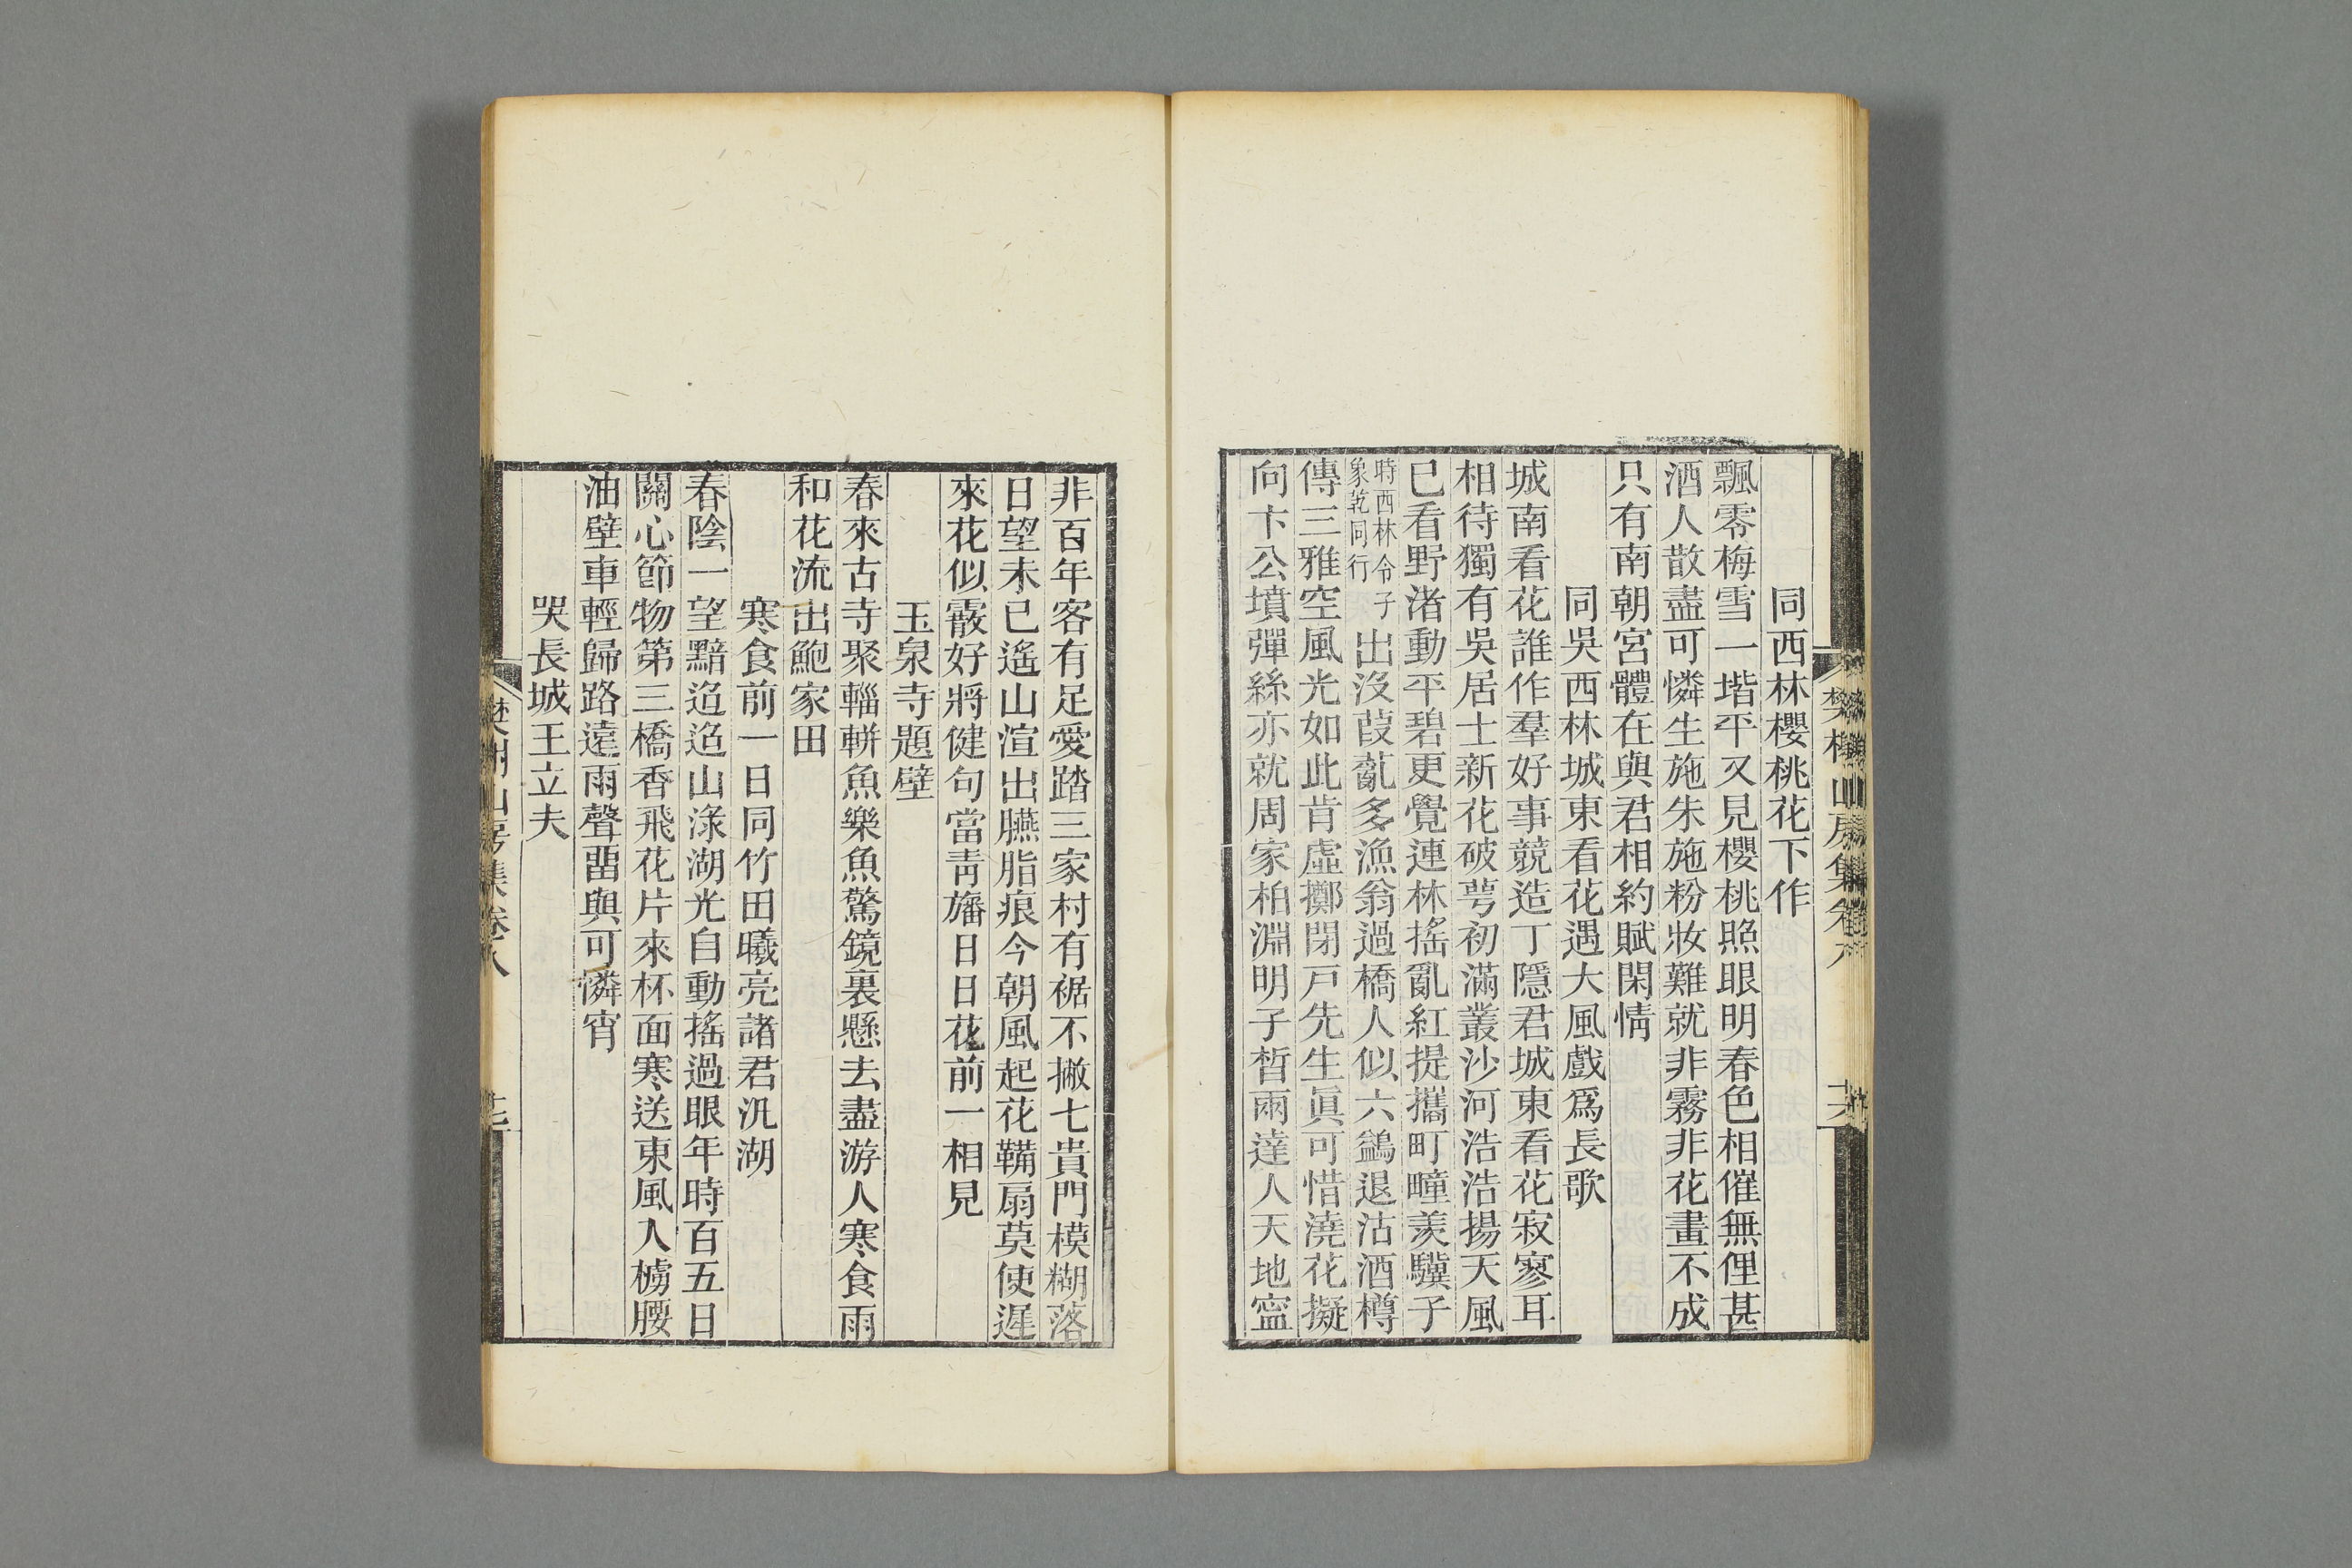 同西林櫻桃花下作
飄零梅雪一堦平又見櫻桃照眼明春色相催無俚甚
酒人散盡可憐生施朱施粉妝難就非霧非花畫不成
只有南朝宮體在與君相約賦閑情
同吳西林城東看花遇大風戲爲長歌
城南看花誰作羣好事競造丁隱君城東看花寂寥耳
相待獨有吳居士新花破萼初滿叢沙河浩浩揚天風
已看野渚動平碧更覺連林搖亂紅提攜町疃羨驥子
時西林令子
象乾同行
出沒葭菼多漁翁過橋人似六鷁退沽酒樽
傳三雅空風光如此肯虛擲閉戸先生眞可惜澆花擬
向卞公墳彈絲亦就周家柏淵明子晳兩達人天地寍
樊榭山房集卷八
十六
非百年客有足愛踏三家村有裾不撇七貴門模糊落
日望未已遙山渲出臙脂痕今朝風起花鞴扇莫使遲
來花似霰好將健句當靑旛日日花前一相見
玉泉寺題壁
春來古寺聚輜軿魚樂魚驚鏡裏懸去盡游人寒食雨
和花流出鮑家田
寒食前一日同竹田曦亮諸君汎湖
春陰一望黯迢迢山淥湖光自動搖過眼年時百五日
關心節物第三橋香飛花片來杯面寒送東風入櫋腰
油壁車輕歸路遠雨聲畱與可憐宵
哭長城王立夫
樊榭山房集卷八